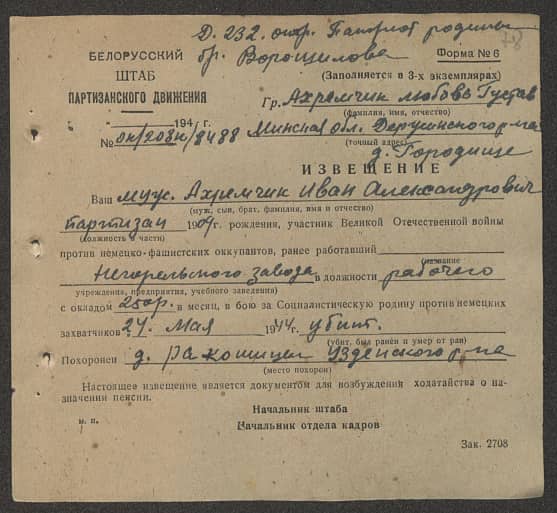 Д. 232. отр. Патриот родины
бр. Ворошилова
Форма № 6
БЕЛОРУССКИЙ
ШТАБ
ПАРТИЗАНСКОГО ДВИЖЕНИЯ
(Заполняется в 3-х экземплярах)
Гр. Ахремчик Любовь Густав
(фамилия, имя, отчество)
194 г.
№ /8488 Минская обл. р-на
(точный адрес)
д. Городище
ИЗВЕЩЕНИЕ
Ваш муж. Ахремчик Иван Александрович
(муж, сын, брат, фамилия, имя и отчество)
партизан 1904 г. рождения, участник Великой Отечественной войны
(должность в части)
против немецко-фашистских оккупантов, ранее работавший
(название
Негорельского завода в должности рабочего
учреждения, предприятия, учебного заведения)
с окладом 250р. в месяц, в бою за Социалистическую родину против немецких
захватчиков 24 Мая 1944 г. убит.
(убит, был ранен и умер от ран)
Похоронен д. Узденского р-на
(место похорон)
Настоящее извещение является документом для возбуждения ходатайства о на-
значении пенсии.
Начальник штаба
м. п.
Начальник отдела кадров
Зак. 2708